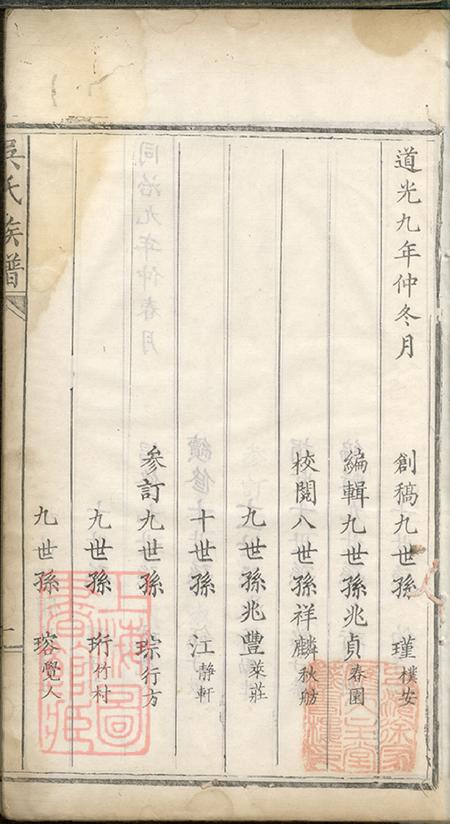 道光九年仲冬月
創稿九世孫 瑾 樸安
編輯九世孫兆貞 春園
校閱八世孫祥麟 秋舫
九世孫兆豐 萊莊
十世孫 江 靜軒
參訂九世孫 琮 行方
九世孫 珩 竹村
九世孫 瑢 覺人
吳氏族譜
二
同治九年仲春月
續修
上海圖書館藏